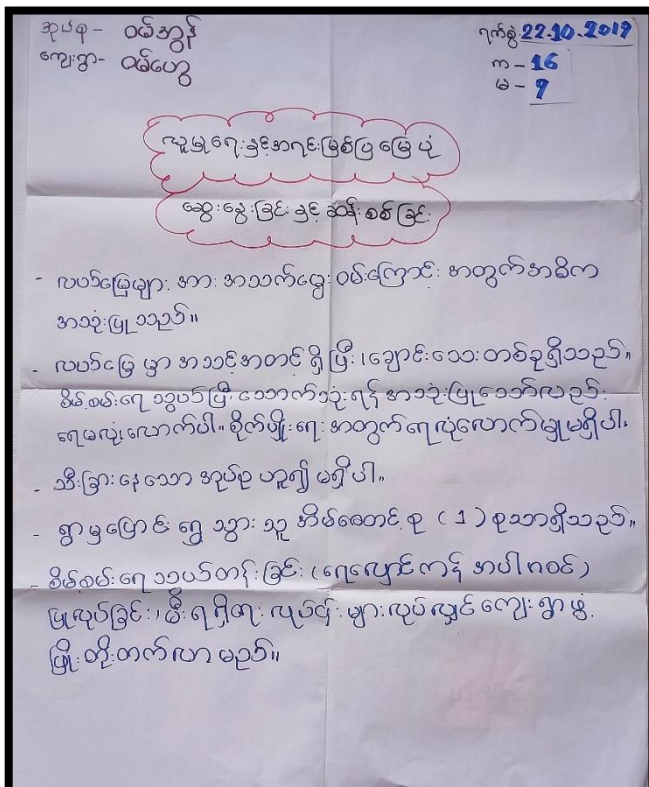 အုပ်စု - ဝမ်အွန်
ရက်စွဲ 22.10.2019
ကျေးရွာ - ဝမ်ဟွေ
က - 16
မ - 9
လူမှုရေးနှင့်အရင်းမြစ်ပြမြေပုံ
ဆွေးနွေးခြင်းနှင့်ဆန်းစစ်ခြင်း
- လယ်မြေများအား အသက်မွေးဝမ်းကြောင်းအတွက်အဓိက
အသုံးပြုသည်။
- လယ်မြေမှာ အသင့်အတင့်ရှိပြီး ၊ ချောင်းသေးတစ်ခုရှိသည်။
စိမ့်စမ်းရေသွယ်ပြီးသောက်သုံးရန်အသုံးပြုသော်လည်း
ရေမလုံလောက်ပါ။ စိုက်ပျိုးရေးအတွက်ရေလုံလောက်မှုမရှိပါ။
- သီးခြားနေသောအုပ်စုဟူ၍မရှိပါ။
- ရွာမှပြောင်းရွှေ့သွားသူ အိမ်ထောင်စု (1) စုသာရှိသည်။
- စိမ့်စမ်းရေသွယ်တန်းခြင်း (ရေလှောင်ကန်အပါဝင်)
ပြုလုပ်ခြင်း ၊ မီးရရှိရေးလုပ်ငန်းများလုပ်လျှင်ကျေးရွာဖွံ့
ဖြိုးတိုးတက်လာမည်။